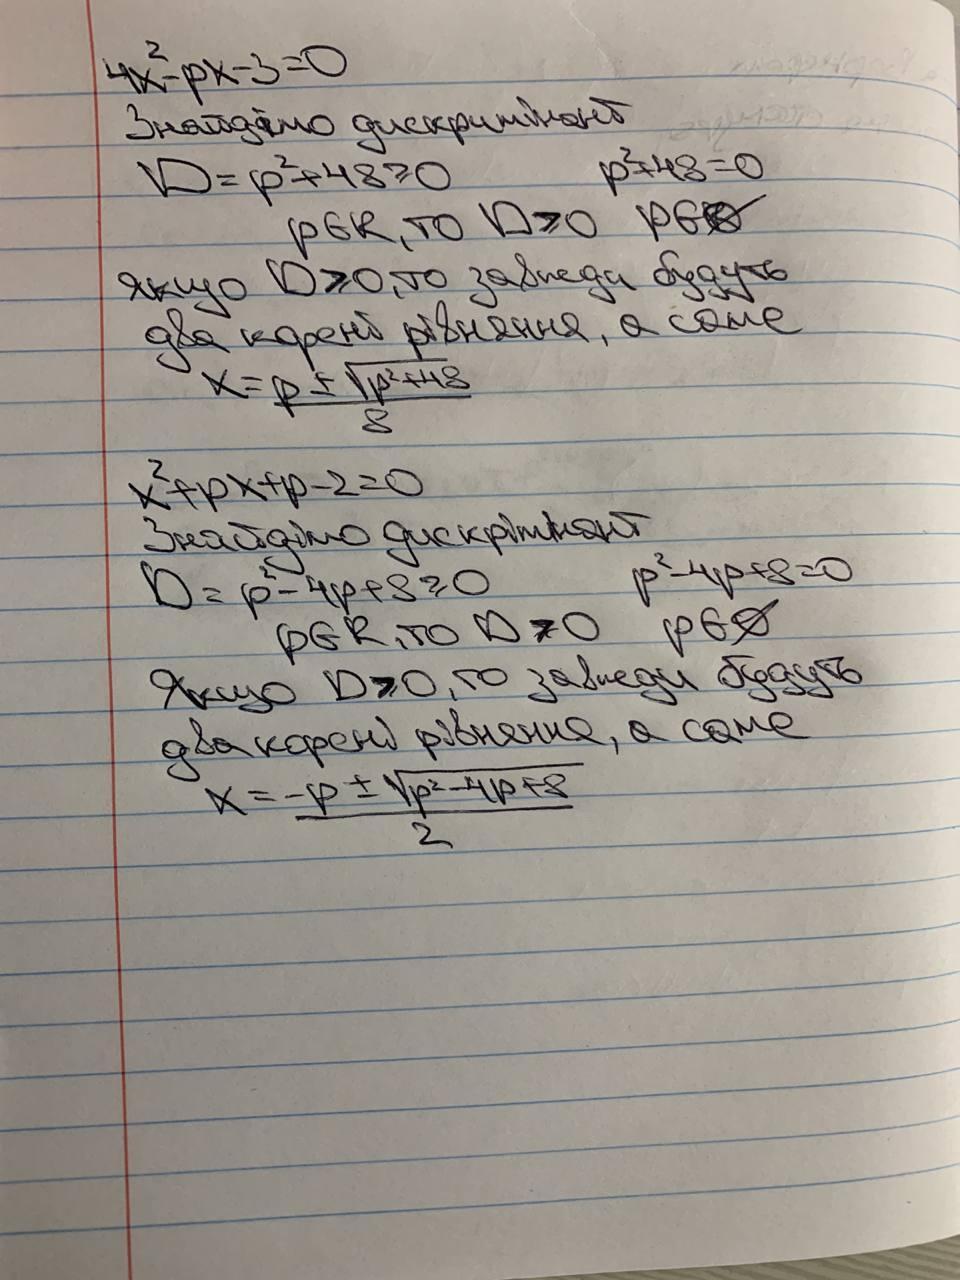 4x²-px-3=0
Знайдімо дискримінант
D=p²+48≥0 p²+48=0
p∈R, то D>0 p∈∅
Якщо D>0, то завжди будуть
два корені рівняння, а саме
x=p±√p²+48
8
x²+px+p-2=0
Знайдімо дискрімінант
D=p²-4p+8≥0 p²-4p+8=0
p∈R, то D>0 p∈∅
Якщо D>0, то завжди будуть
два корені рівняння, а саме
x=-p±√p²-4p+8
2